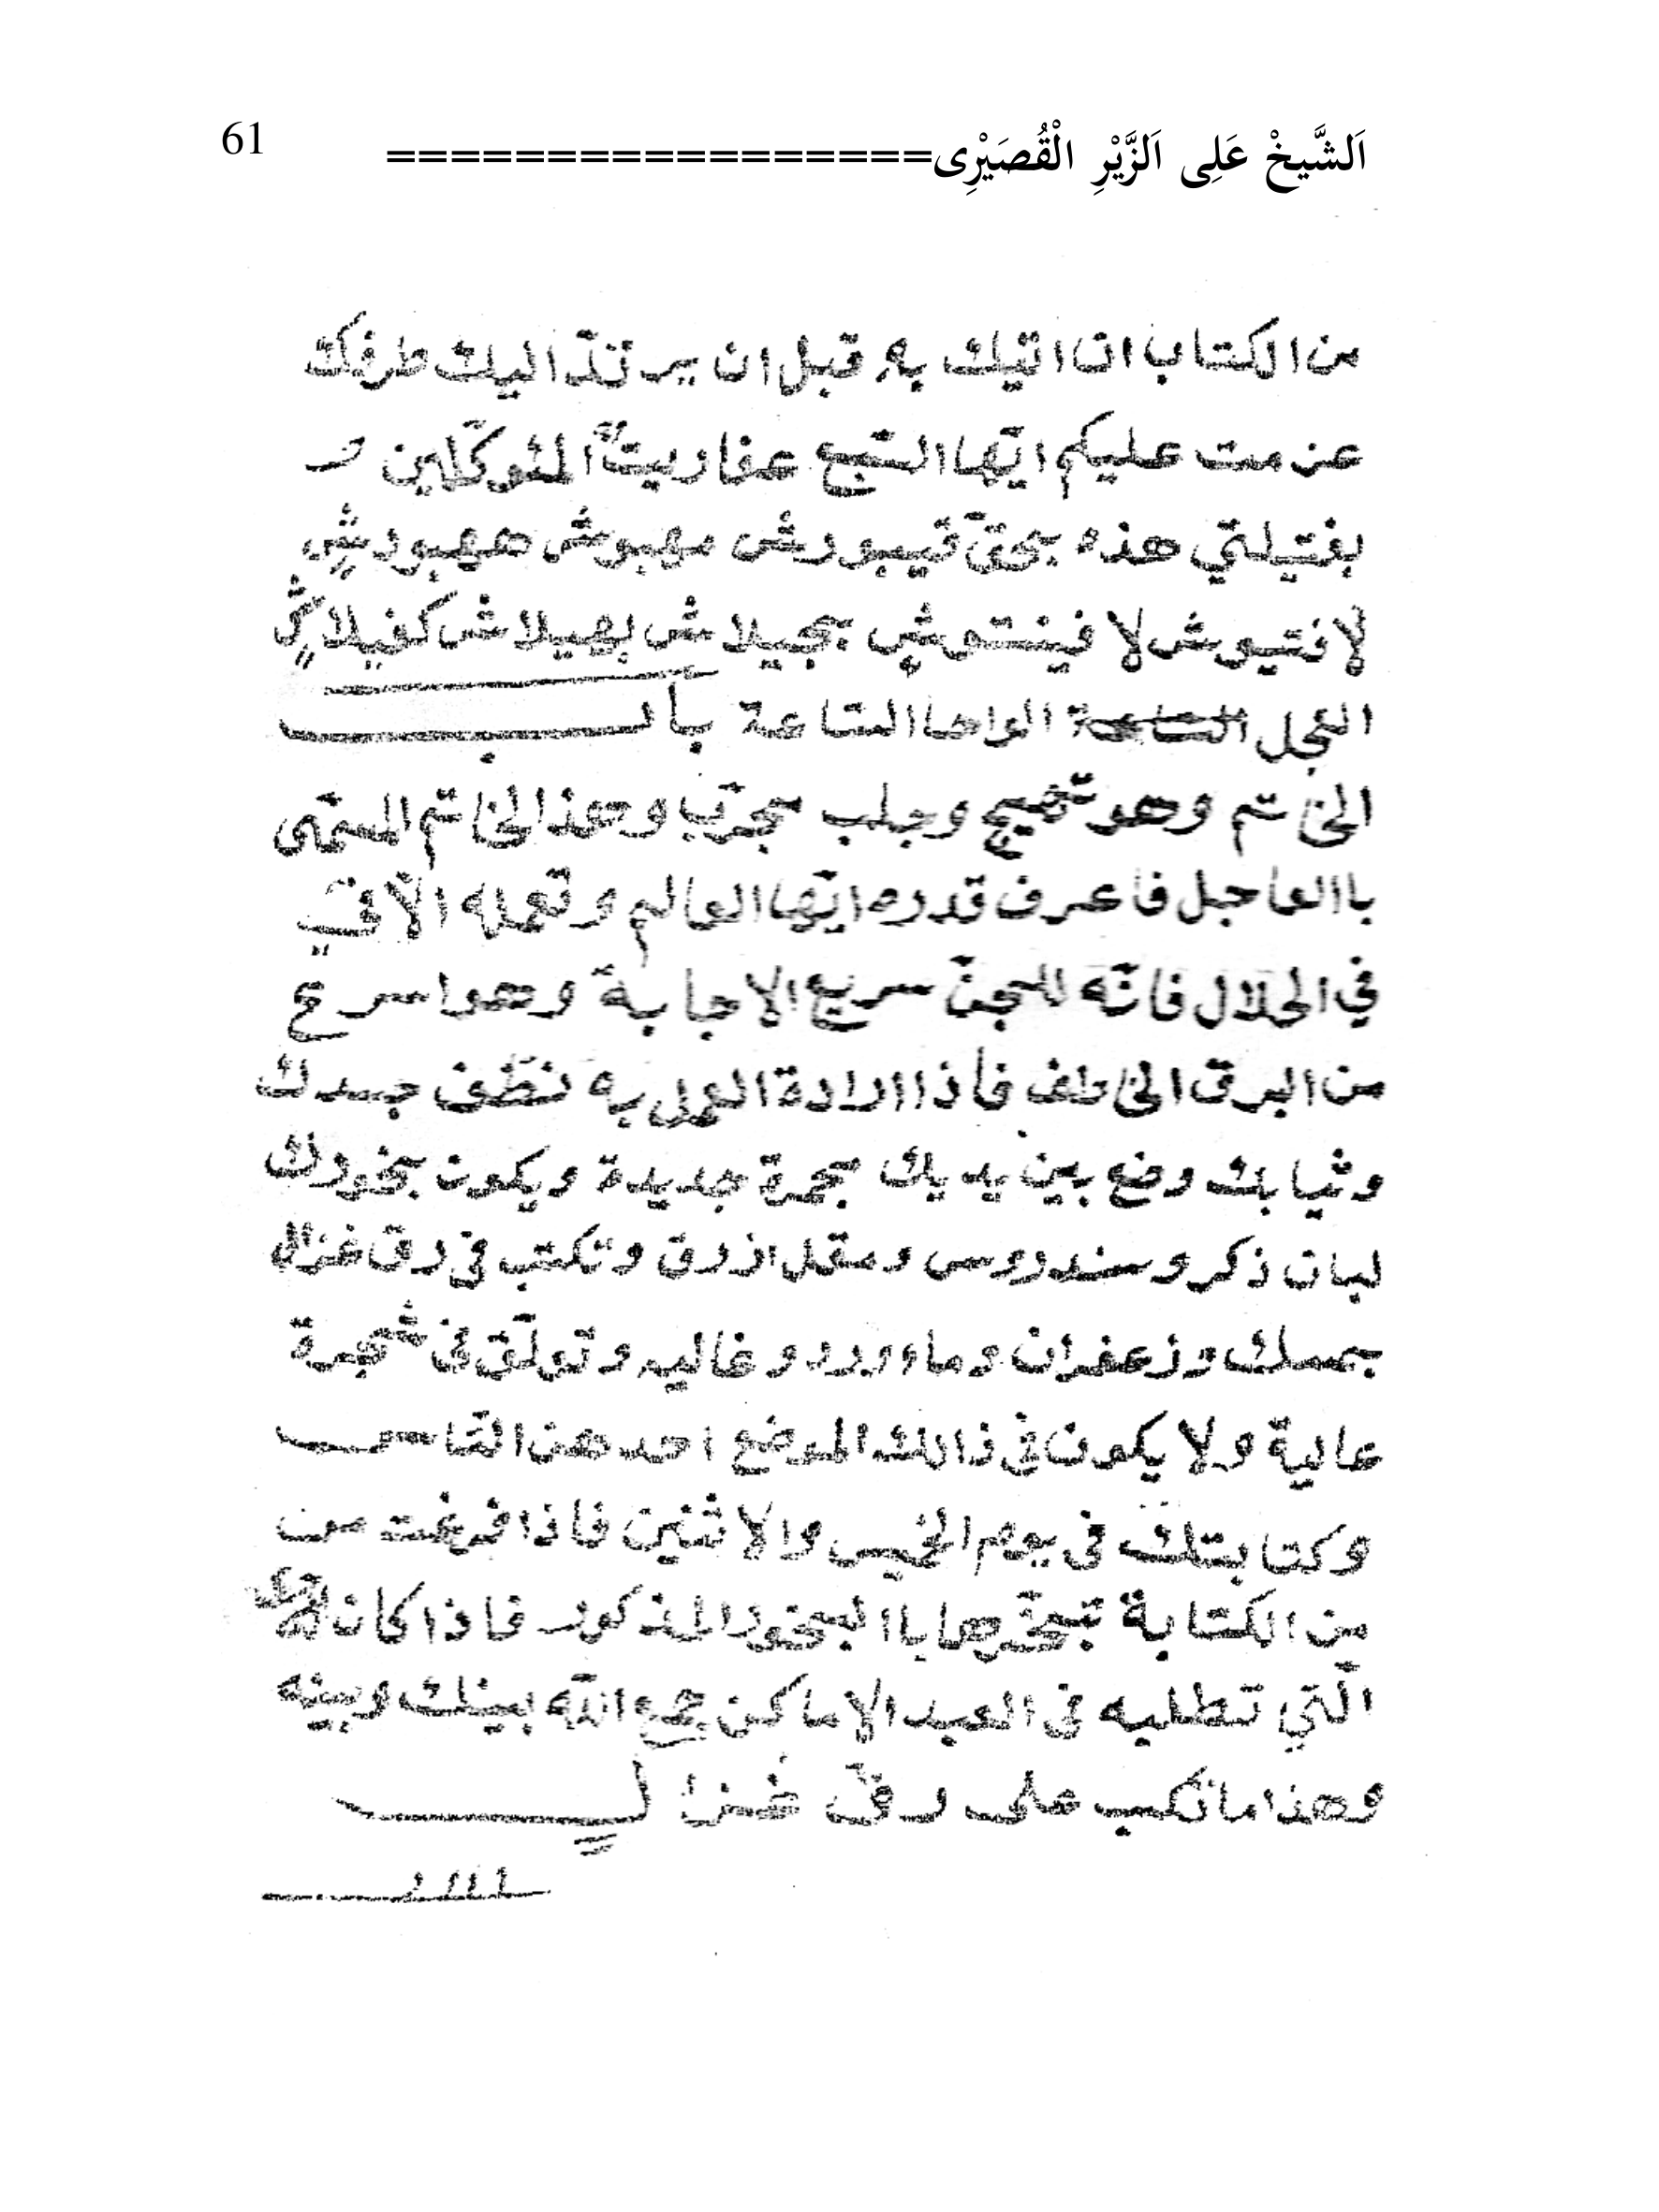 اَلشَّيخْ عَلِى اَلزَّيْرِ الْقُصَيْرِى================= 61
من الكتاب انا اتيك به قبل ان يرتدّ اليك طرفك
عزمت عليكم ايّها السّبع عفاريتً المئوكّلين
بفتيلتي هذه بحقّ قيبورش مهبوش ههبورشٍ
لافتيوش لا فينتوشٍ بجيلاش بهيلاش كفيلاشٍ
العجل الواحا السّاعة بأب
الخاتم وهو تهيج وجلب مجرّب وهذ الخاتم المسمّى
باالعاجل فاعرف قدره ايّها العالم وتعمله الّافي
في الحلال فانّه للجنّ سريع الاجابة وهو اسرع
من البرق الخاطف فأذا ارادة العمل به نظّف جسدك
وثيابك وضع بين يديك مجمرة جديدة ويكون بخورك
لبان ذكر وسندروس ومقل ازرق وتكتب في رق غزال
بمسك وزعفران وماورد وغاليه وتولّق في شجرة
عالية ولا يكون في ذالك الموضع احد من النّاس
وكتابتك في يوم الخميس والاثنين فاذا فرغت من
من الكتابة تبخّرها باالبخور المذكور فاذا كان
الّتي تطلبه في العبد الاماكن جمع اللّه بينك وبينه
وهذا ماتكتب على رقّ غزال